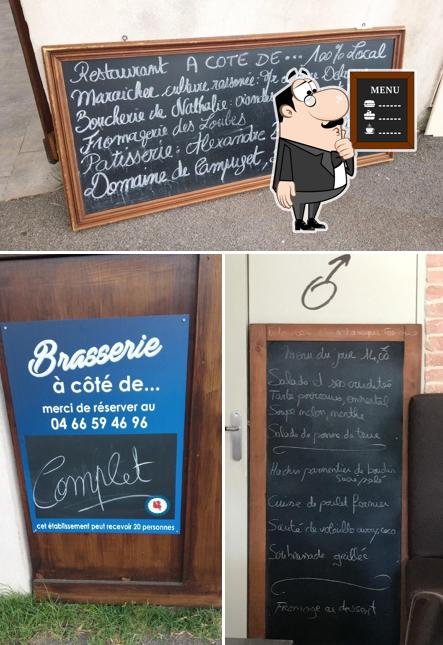 Restaurant A COTE DE... 100% Local
Maraicher culture raisonnée:
Boucherie de Nathalie: viande
Fromagerie des Loubes
Patisserie: Alexandre
Domaine de Campuget,
MENU
Brasserie
à côté de...
merci de réserver au
04 66 59 46 96
Complet
cet établissement peut recevoir 20 personnes
Menu du jour 14,00
Salade et ses crudités
Tarte poireaux, emmental
Soupe melon, menthe
Salade de pomme de terre
Hachis parmentier de boudin
sucré/salé
Cuisse de poulet fermier
Sauté de volaille curry, coco
Soubressade grillée
Fromage ou dessert